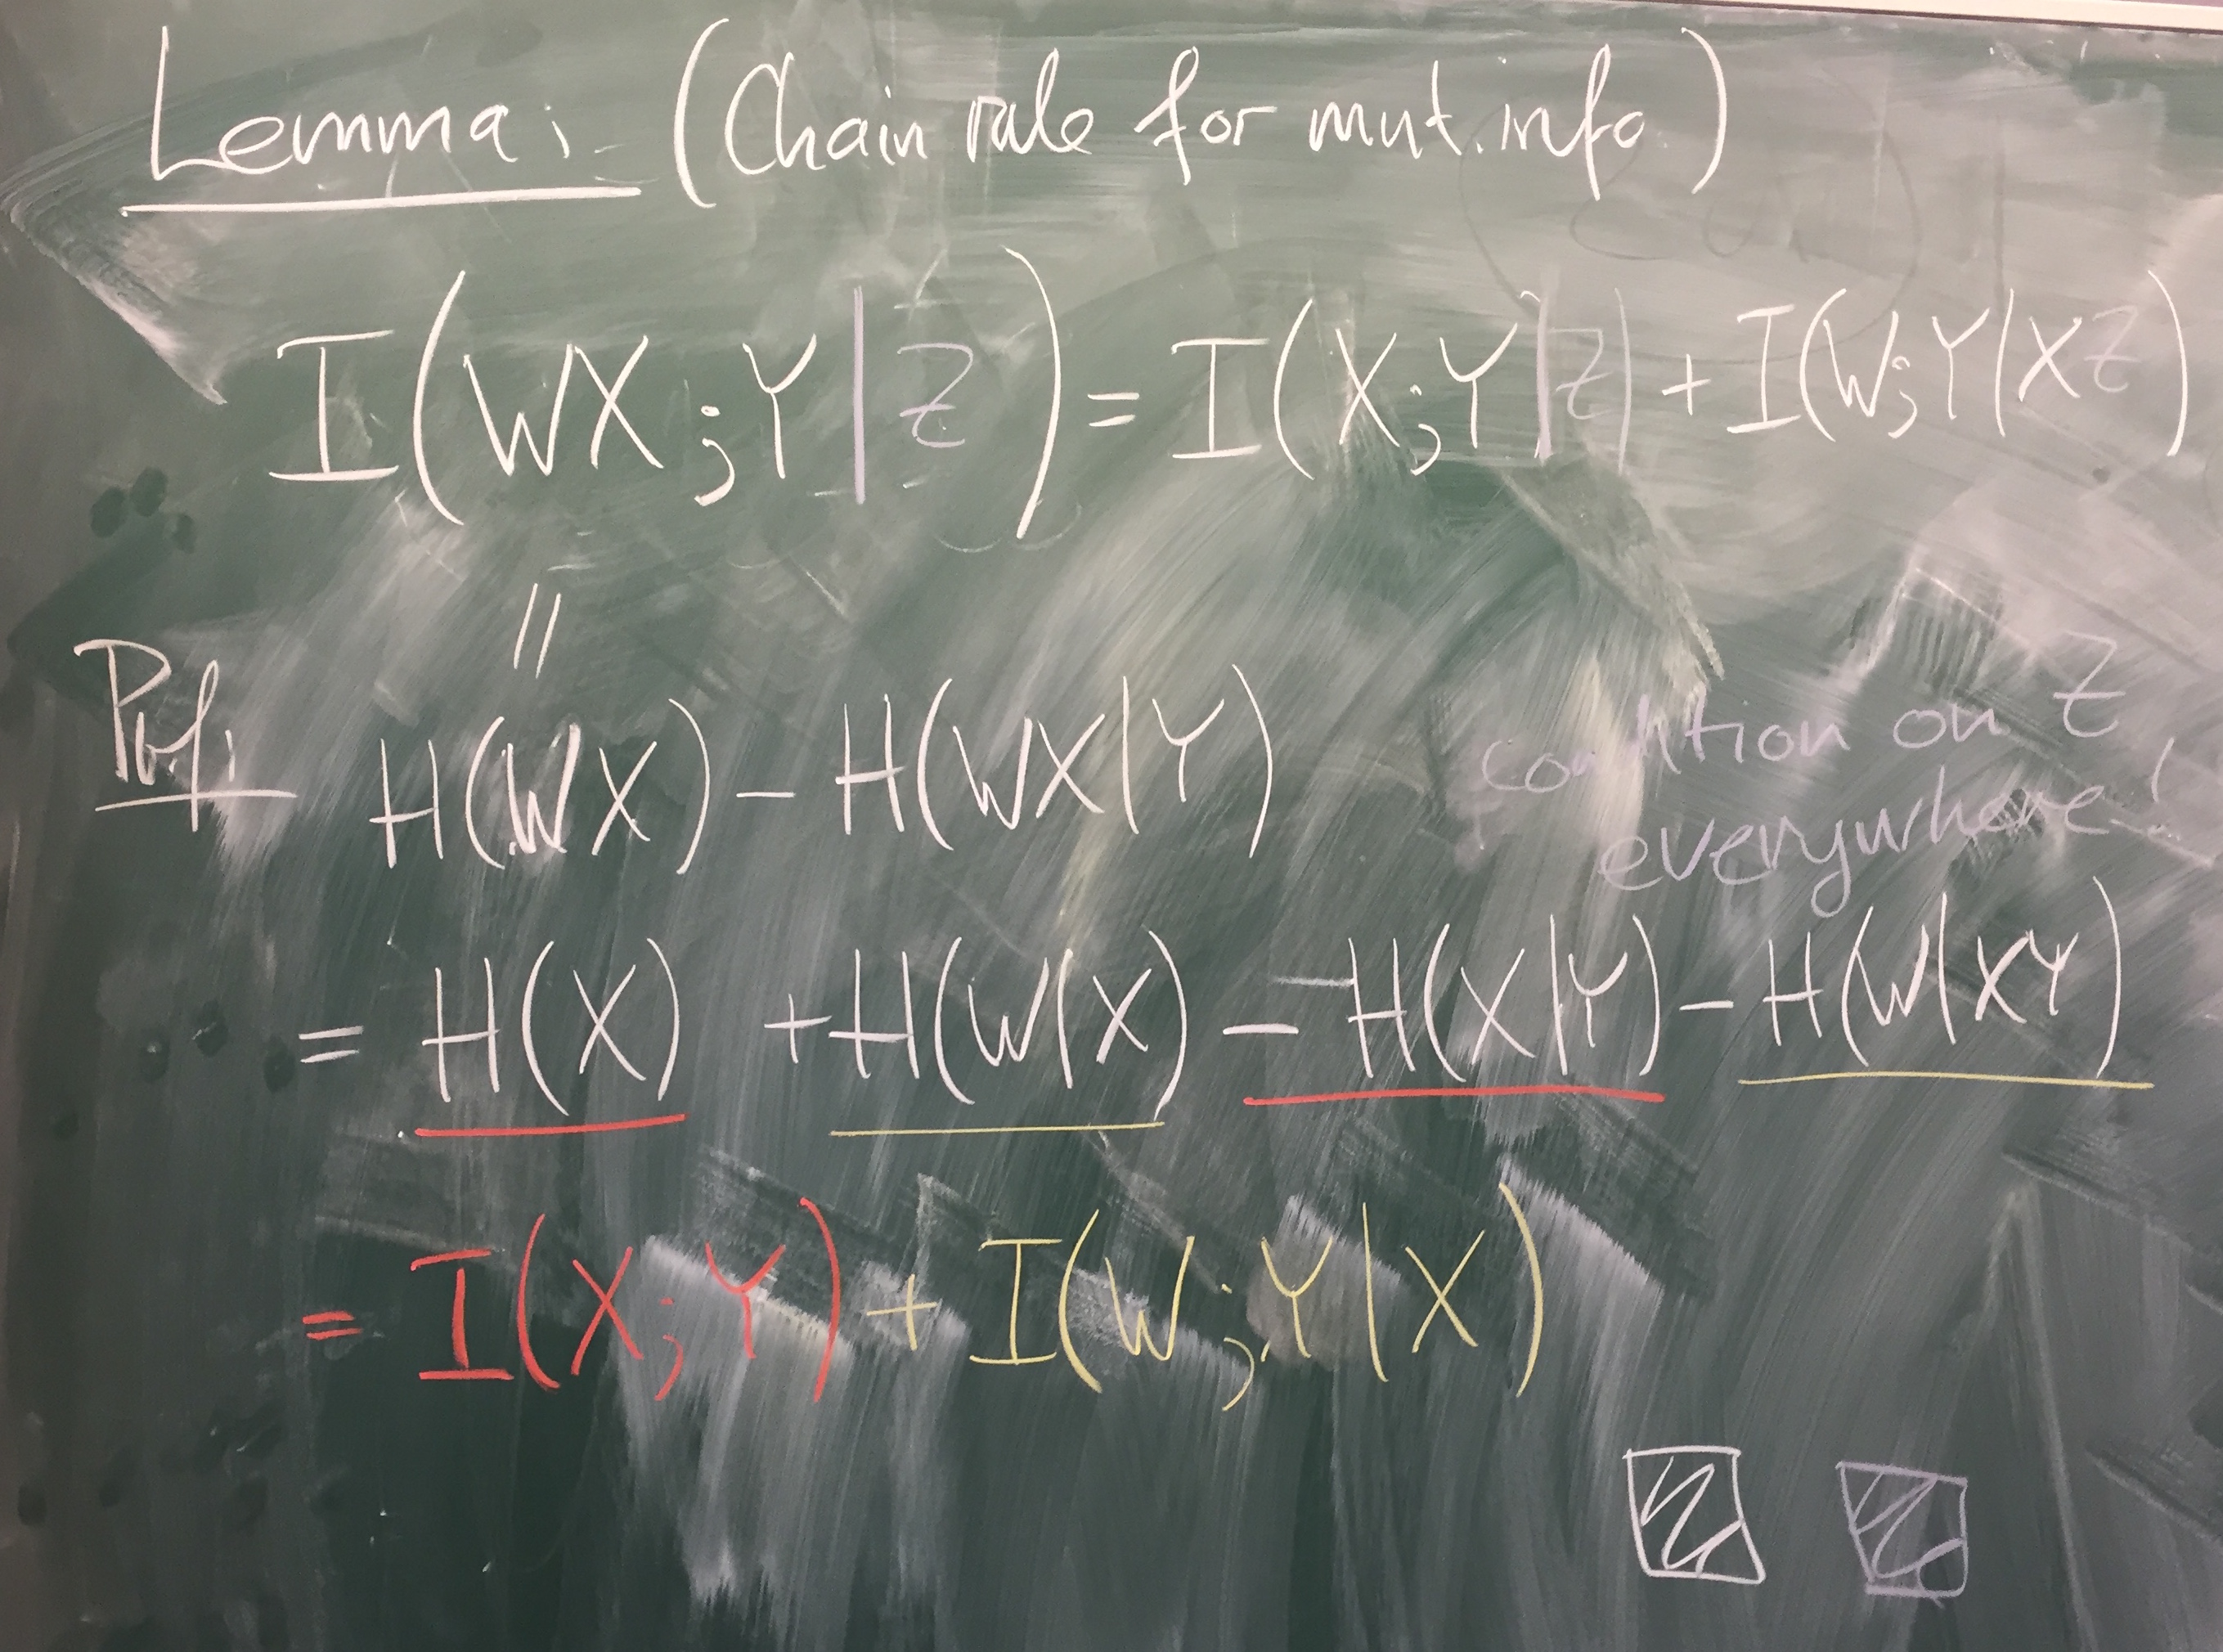 Lemma: (Chain rule for mut. info.)
I(WX;Y|Z) = I(X;Y|Z) + I(W;Y|XZ)
||
Prf: H(WX) - H(WX|Y)
condition on Z
everywhere!
= H(X) + H(W|X) - H(X|Y) - H(W|XY)
= I(X;Y) + I(W;Y|X)